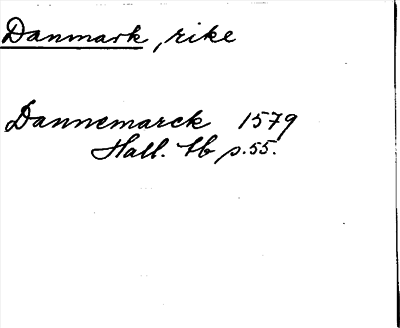 Danmark, rike
Dannemarck 1579
Hall. tb p. 55.